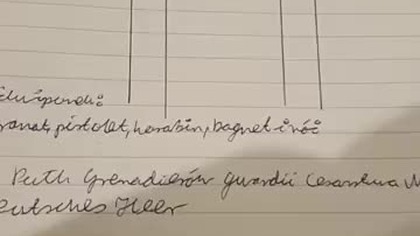 ranat, pistolet, karabin, bagnet i nóż
Pułk Grenadierów gwardii Cesarstwa
eutsches Heer